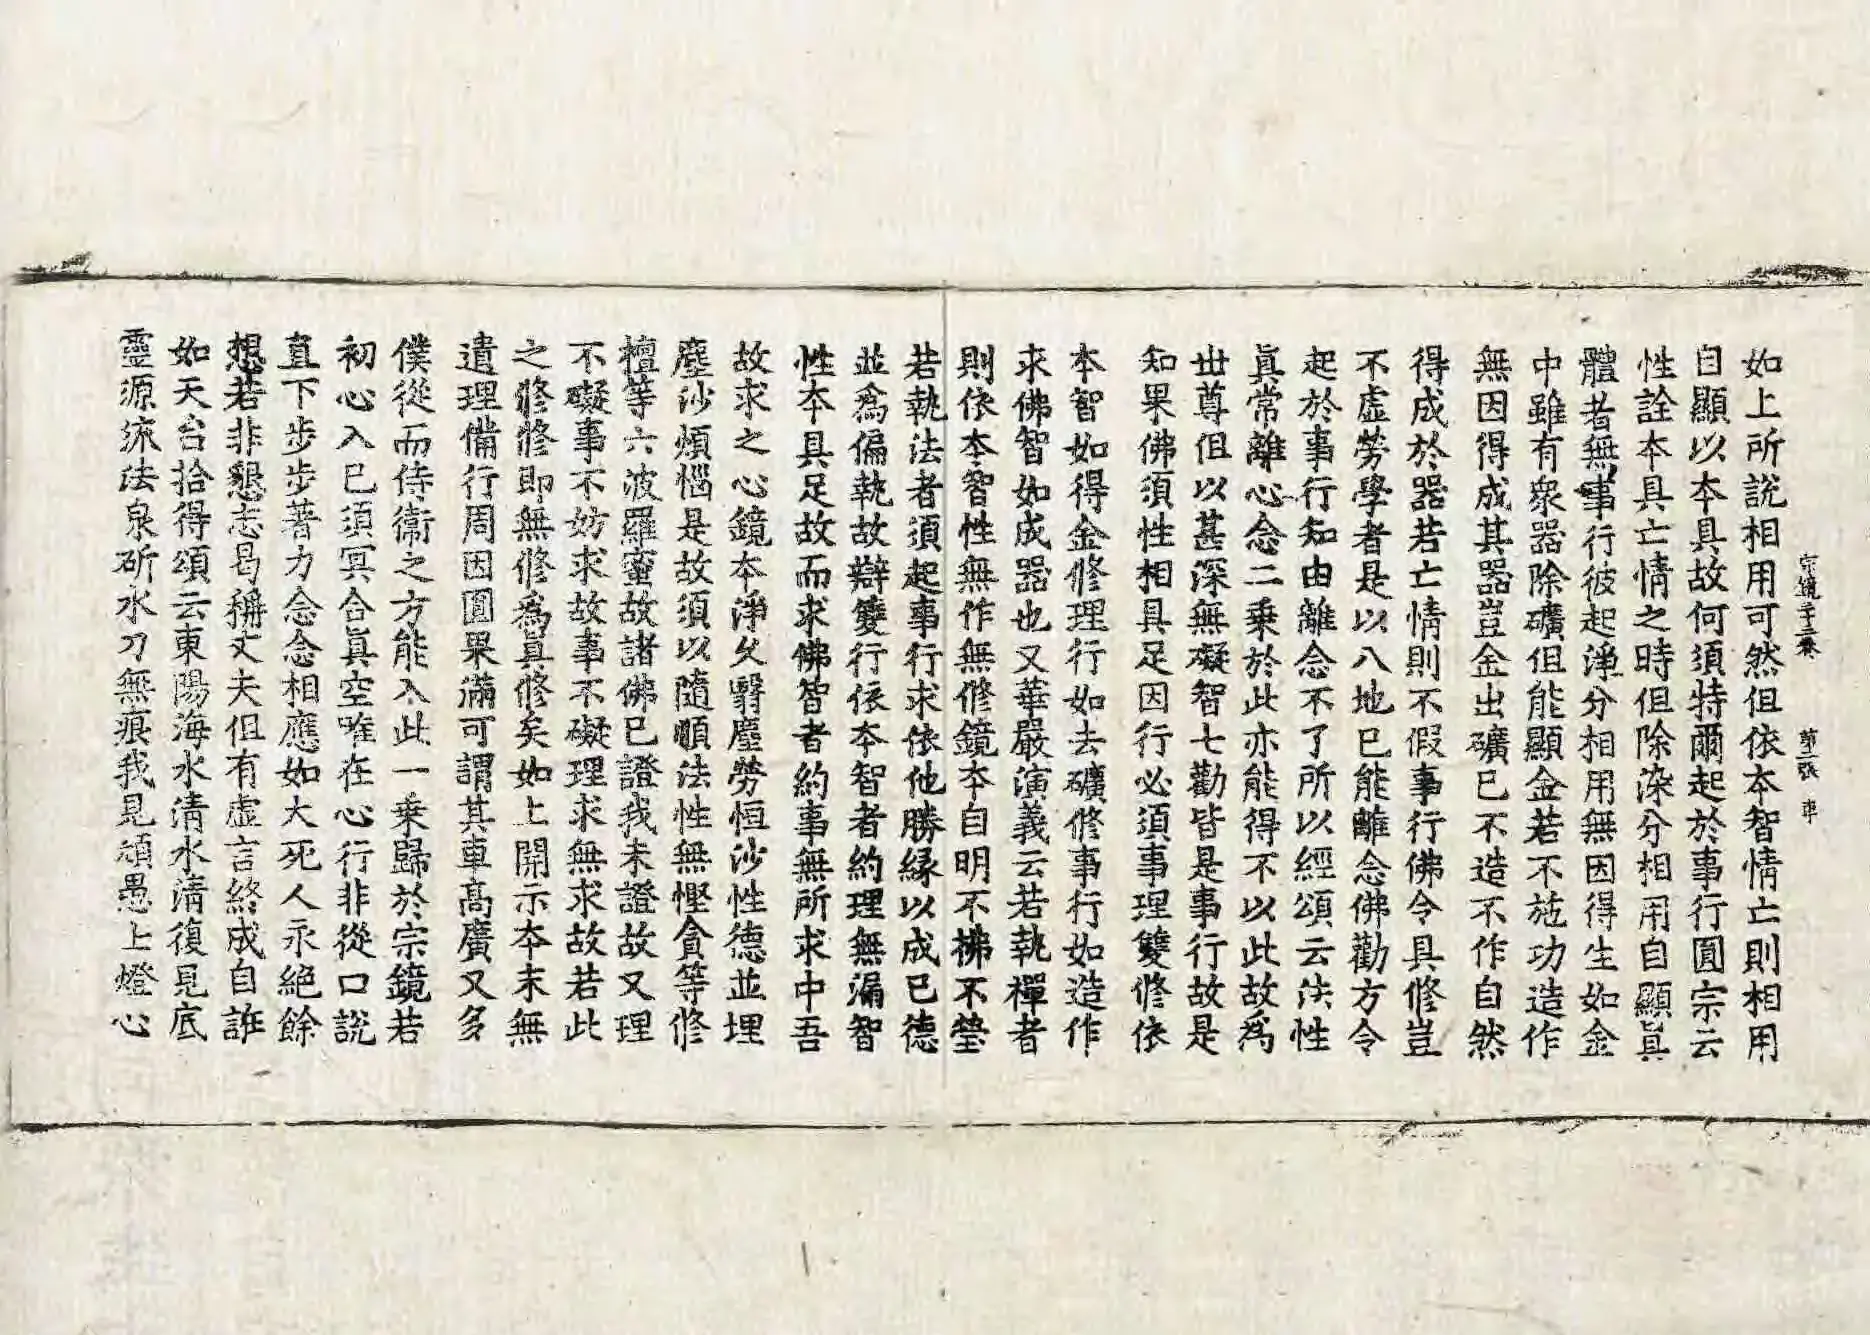 宗鏡 第二張
如上所說相用可然但依本智情亡則相用
自顯以本具故何須特爾起於事行圓宗云
性詮本具亡情之時但除染分相用自顯眞
體者無事行彼起淨分相用無因得生如金
中雖有衆器除礦但能顯金若不施功造作
無因得成其器豈金出礦已不造不作自然
得成於器若亡情則不假事行佛令具修豈
不虛勞學者是以八地已能離念佛勸方令
起於事行知由離念不了所以經頌云法性
眞常離心念二乗於此亦能得不以此故爲
世尊但以甚深無礙智七勸皆是事行故是
知果佛須性相具足因行必須事理雙修依
本智如得金修理行如去礦修事行如造作
求佛智如成器也又華嚴演義云若執禪者
則依本智性無作無修鏡本自明不拂不瑩
若執法者須起事行求依他勝緣以成已德
並爲偏執故辯雙行依本智者約理無漏智
性本具足故而求佛智者約事無所求中吾
故求之心鏡本淨久翳塵勞恒沙性德並埋
塵沙煩惱是故須以隨順法性無慳貪等修
檀等六波羅蜜故諸佛已證我未證故又理
不礙事不妨求故事不礙理求無求故若此
之修修即無修爲眞修矣如上開示本末無
遺理備行周因圓果滿可謂其車高廣又多
僕從而侍衛之方能入此一乗歸於宗鏡若
初心入已須冥合眞空唯在心行非從口說
直下步步著力念念相應如大死人永絕餘
想若非懇志曷稱丈夫但有虛言終成自誑
如天台拾得頌云東陽海水清水清復見底
靈源流法泉斫水刀無痕我見頑愚士燈心